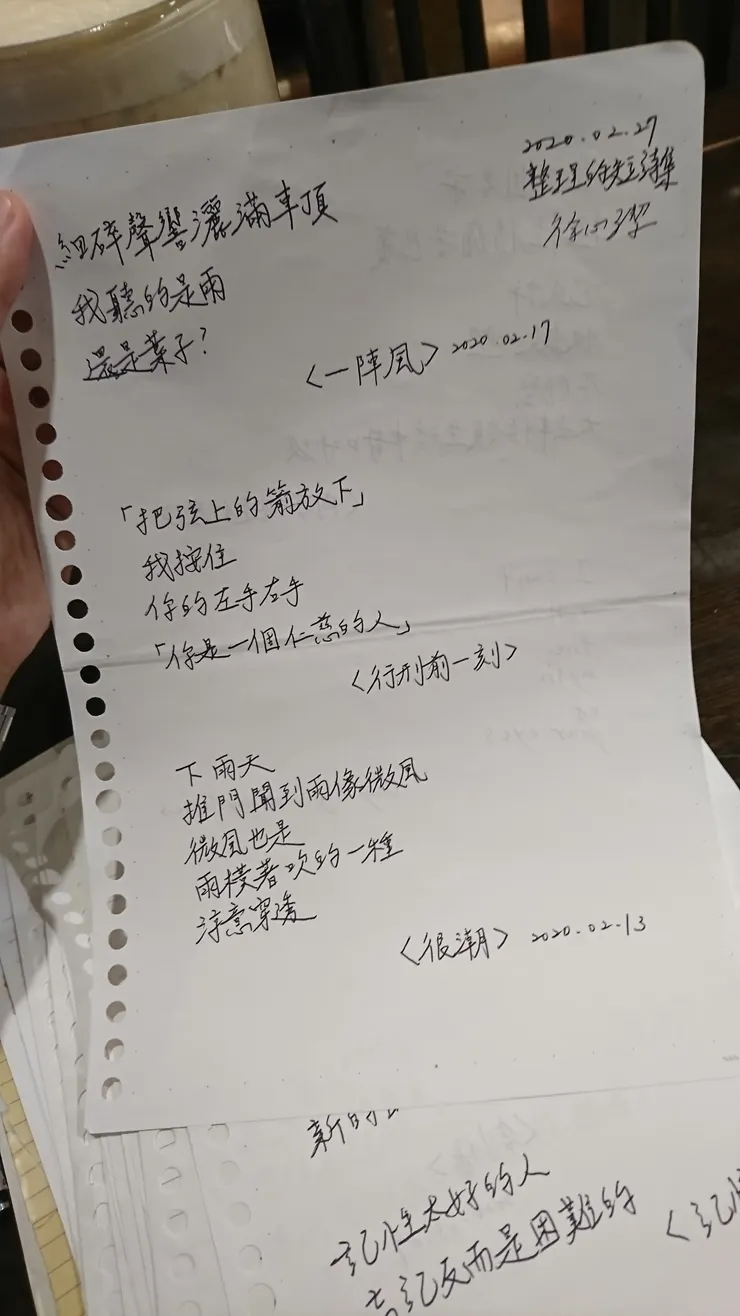 2020.02.27
整理的短詩集
徐心潔
細碎聲響灑滿車頂
我聽的是雨
還是葉子?
〈一陣風〉 2020.02.17
「把弦上的箭放下」
我按住
你的左手右手
「你是一個仁慈的人」
〈行刑前一刻〉
下雨天
推門聞到雨像微風
微風也是
雨橫著吹的一種
淳意穿透
〈很潮〉 2020.02.13
記性太好的人
忘記反而是困難的